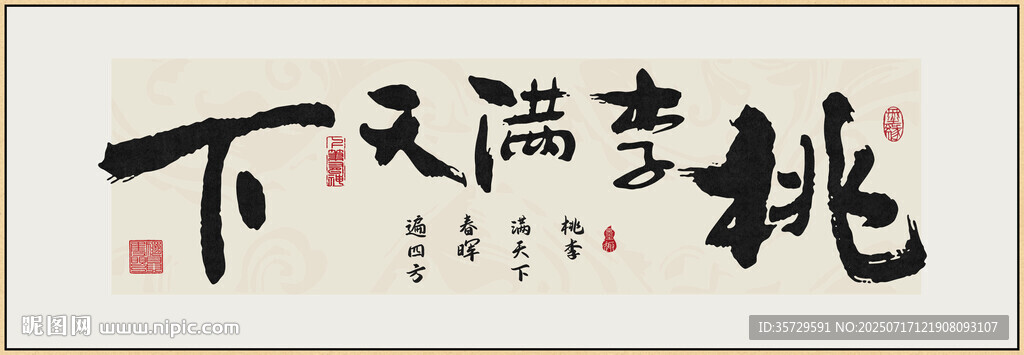 桃李满天下
桃李
满天下
春晖
遍四方
昵图网 www.nipic.com
ID:35729591 NO:20250717121908093107